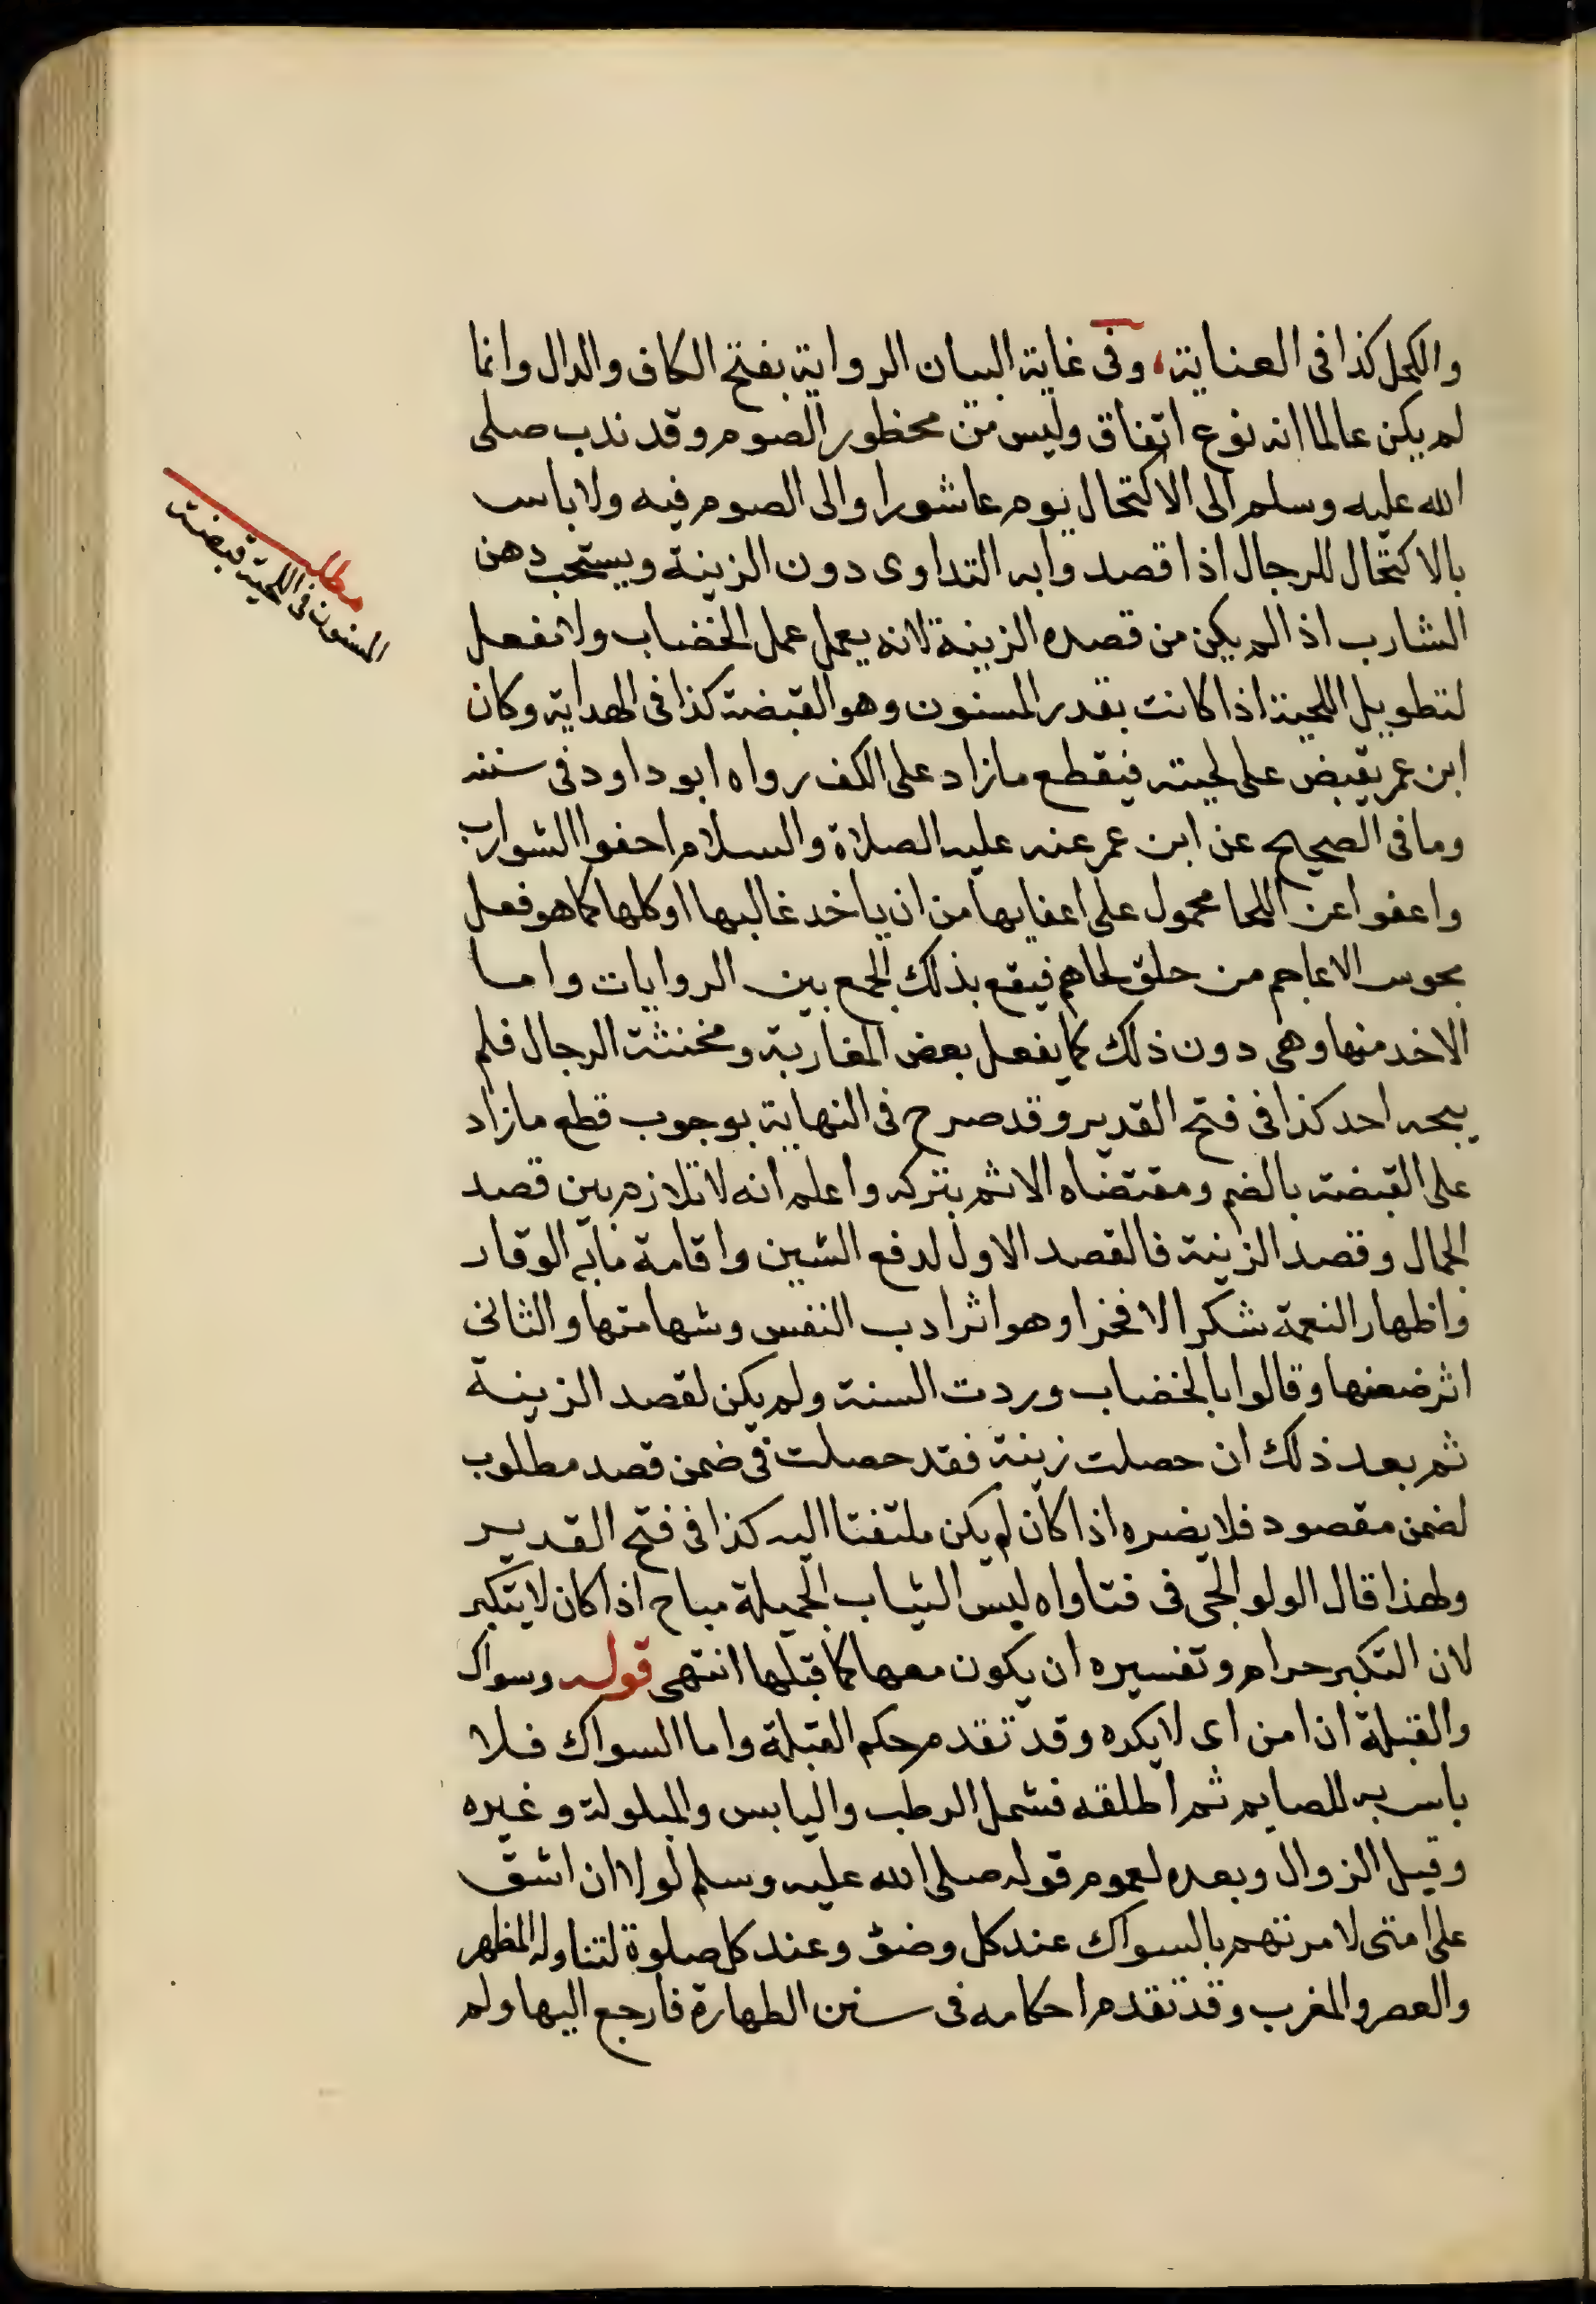 والكحل كذا فى العناية، وفى غاية البيان الرواية بفتح الكاف والدال وانما
لم يكن عالما انه نوع اتفاق وليس من محظور الصوم وقد ندب صلى
الله عليه وسلم الى الاكتحال يوم عاشورا والى الصوم فيه ولا باس
بالاكتحال للرجال اذا قصدوا به التداوى دون الزينة ويستحب دهن
الشارب اذا لم يكن من قصده الزينة لانه يعمل عمل الخضاب ولا تفعل
لتطويل اللحية اذا كانت بقدر المسنون وهو القبضة كذا فى الهداية وكان
ابن عمر يقبض على لحيته فيقطع ما زاد على الكف رواه ابو داود فى سننه
وما فى الصحيح عن ابن عمر عنه عليه الصلاة والسلام احفوا الشوارب
واعفوا عن اللحا محمول على اعفايها من ان ياخد غالبها او كلها كما هو فعل
مجوس الاعاجم من حلق لحاهم فيقع بذلك الجمع بين الروايات واما
الاخد منها وهى دون ذلك كما يفعل بعض المغاربة ومخنثة الرجال فلم
يبحه احد كذا فى فتح القدير وقد صرح فى النهاية بوجوب قطع ما زاد
على القبضة بالضم ومقتضاه الاثم بتركه واعلم انه لا تلازم بين قصد
الجمال وقصد الزينة فالقصد الاول لدفع الشين واقامة ما به الوقار
واظهار النعمة شكرا لا فخرا وهو اثر ادب النفس وشهامتها والثانى
اثر ضعفها وقالوا بالخضاب وردت السنة ولم يكن لقصد الزينة
ثم بعد ذلك ان حصلت زينة فقد حصلت فى ضمن قصد مطلوب
لضمن مقصود فلا يضره اذا كان لم يكن ملتفتا اليه كذا فى فتح القدير
ولهذا قال الولوالجى فى فتاواه لبس الثياب الجميلة مباح اذا كان لا يتكبر
لان التكبر حرام وتفسيره ان يكون معها كما قبلها انتهى قوله وسواك
والقبلة ان امن اى لا يكره وقد تقدم حكم القبلة واما السواك فلا
باس به للصايم ثم اطلقه فشمل الرطب واليابس والمبلولة وغيره
وقبل الزوال وبعده لعموم قوله صلى الله عليه وسلم لولا ان اشق
على امتى لامرتهم بالسواك عند كل وضؤ وعند كل صلوة لتناوله الظهر
والعصر والمغرب وقد تقدم احكامه فى سنن الطهارة فارجع اليها ولم
مطلب
المسنون فى اللحية قبضة